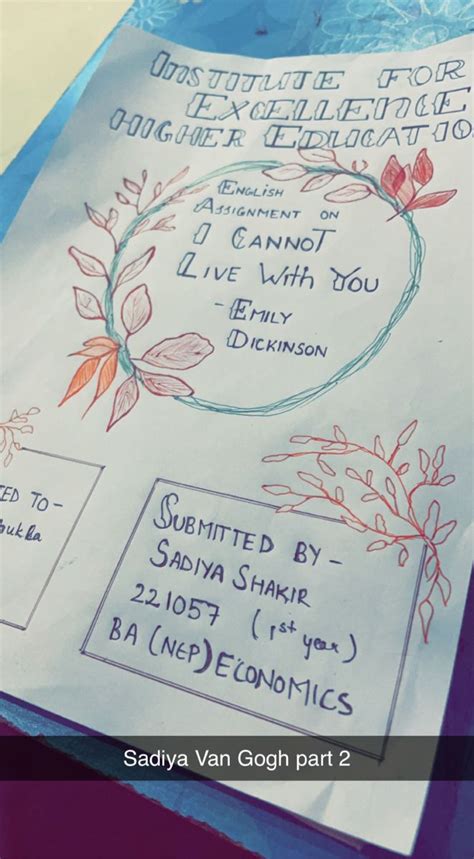 INSTITUTE FOR
EXCELLENCE
HIGHER EDUCATIO
ENGLISH
ASSIGNMENT ON
I CANNOT
LIVE With YOU
- EMILY
DICKINSON
TED TO -
SUBMITTED BY -
SADIYA SHAKIR
221057 (1st year)
BA (NEP) ECONOMICS
Sadiya Van Gogh part 2